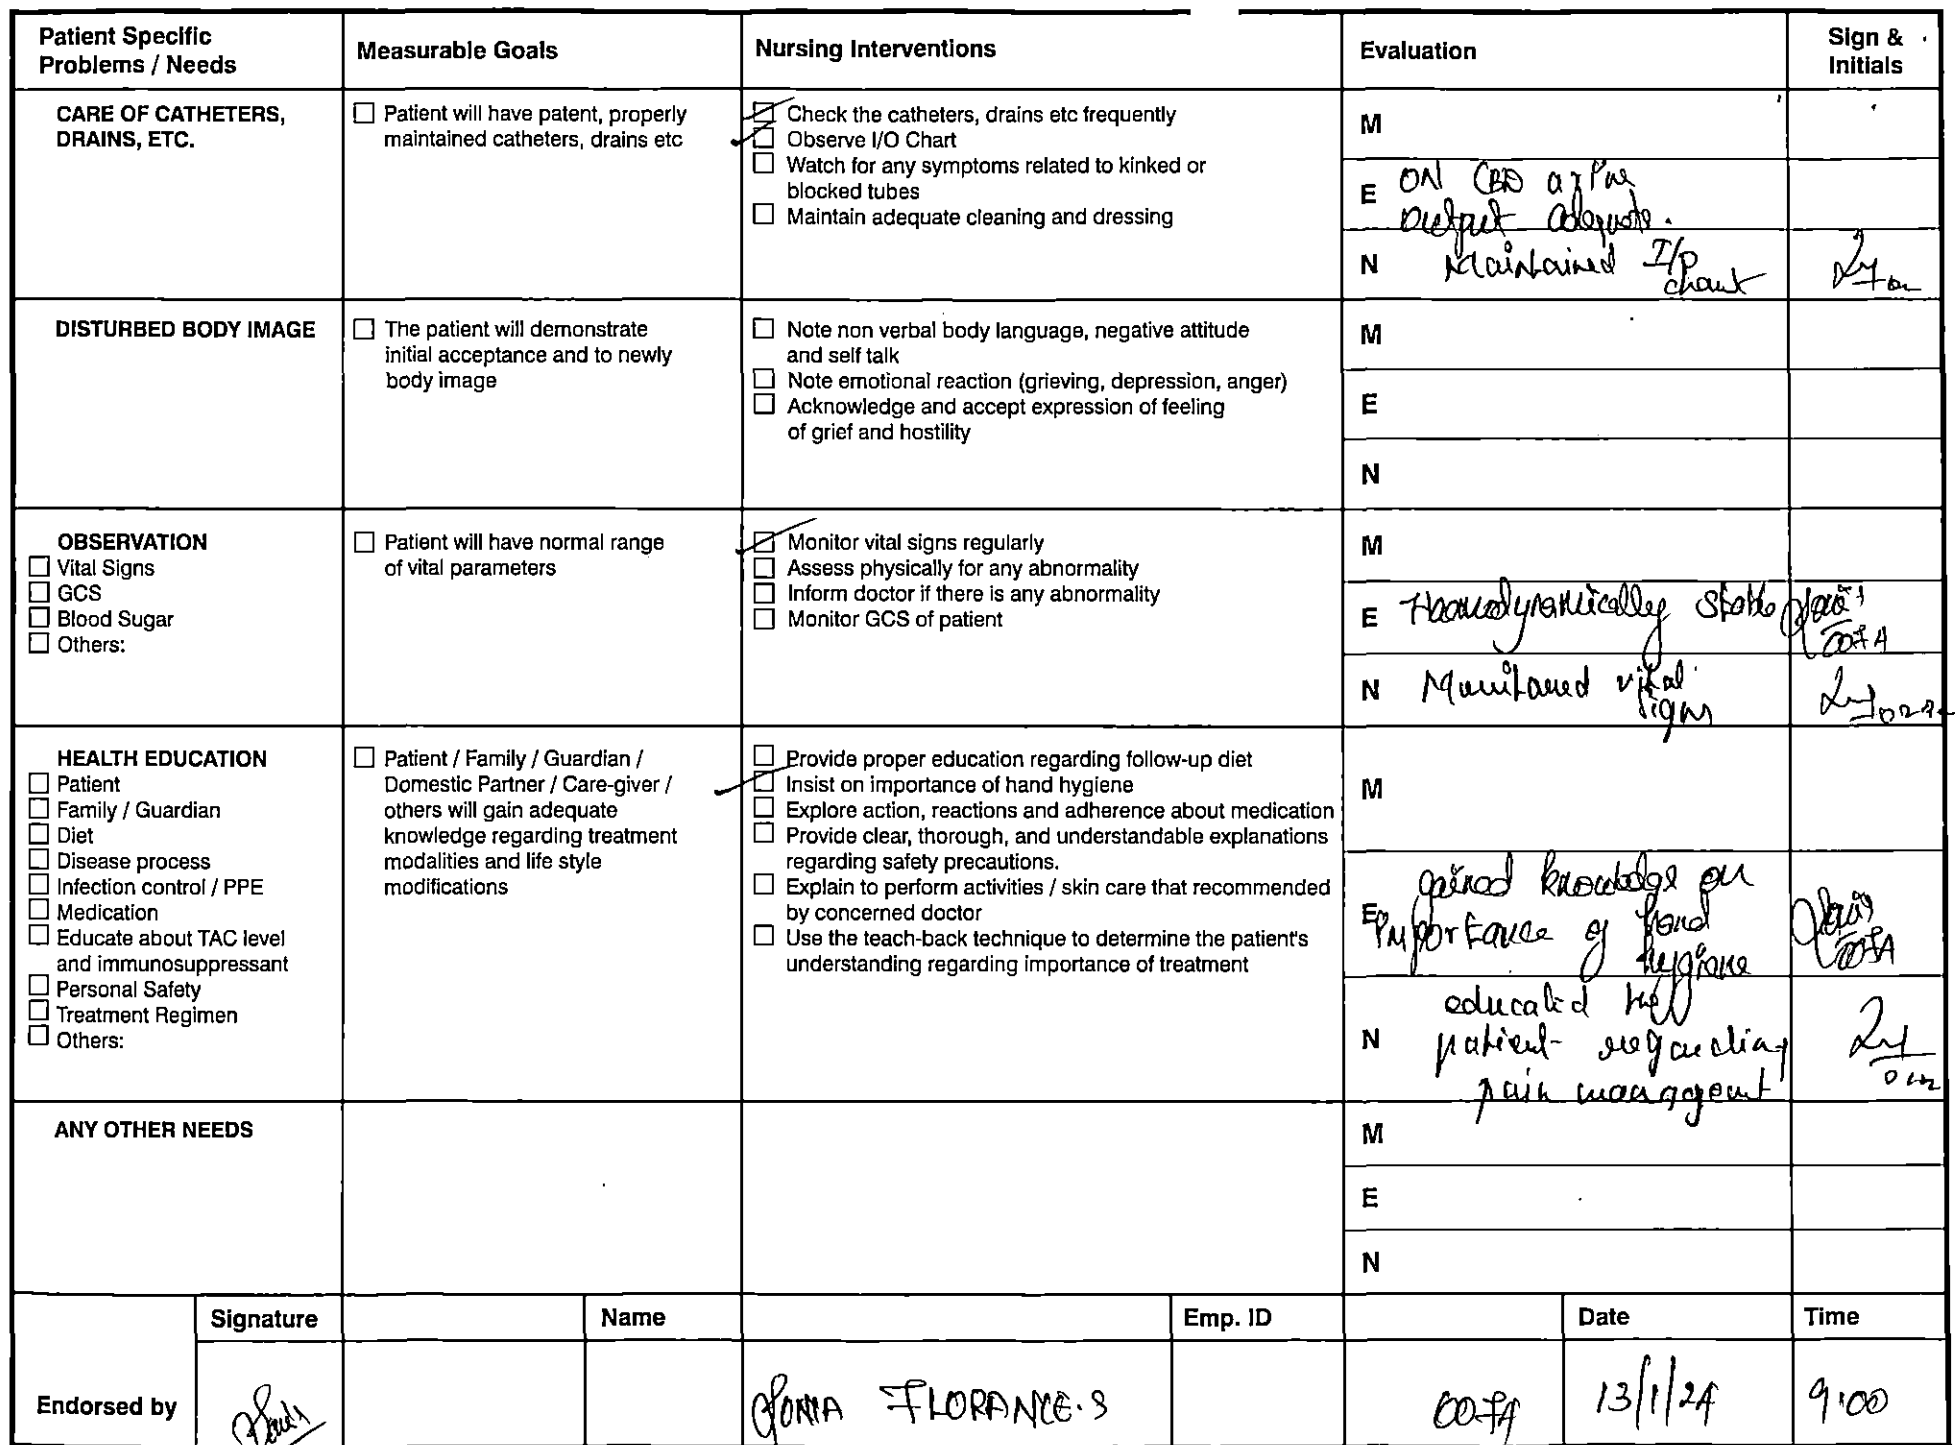 Patient Specific
Problems / Needs
Measurable Goals
Nursing Interventions
Evaluation
Sign &
Initials
CARE OF CATHETERS,
DRAINS, ETC.
☐ Patient will have patent, properly
maintained catheters, drains etc
☑ Check the catheters, drains etc frequently
☑ Observe I/O Chart
☐ Watch for any symptoms related to kinked or
blocked tubes
☐ Maintain adequate cleaning and dressing
M
E ON CBD
output adequate.
N Maintained I/O
chart
DISTURBED BODY IMAGE
☐ The patient will demonstrate
initial acceptance and to newly
body image
☐ Note non verbal body language, negative attitude
and self talk
☐ Note emotional reaction (grieving, depression, anger)
☐ Acknowledge and accept expression of feeling
of grief and hostility
M
E
N
OBSERVATION
☐ Vital Signs
☐ GCS
☐ Blood Sugar
☐ Others:
☐ Patient will have normal range
of vital parameters
☑ Monitor vital signs regularly
☐ Assess physically for any abnormality
☐ Inform doctor if there is any abnormality
☐ Monitor GCS of patient
M
E Haemodynamically stable
N Monitored vital
signs
HEALTH EDUCATION
☐ Patient
☐ Family / Guardian
☐ Diet
☐ Disease process
☐ Infection control / PPE
☐ Medication
☐ Educate about TAC level
and immunosuppressant
☐ Personal Safety
☐ Treatment Regimen
☐ Others:
☐ Patient / Family / Guardian /
Domestic Partner / Care-giver /
others will gain adequate
knowledge regarding treatment
modalities and life style
modifications
☐ Provide proper education regarding follow-up diet
☑ Insist on importance of hand hygiene
☐ Explore action, reactions and adherence about medication
☐ Provide clear, thorough, and understandable explanations
regarding safety precautions.
☐ Explain to perform activities / skin care that recommended
by concerned doctor
☐ Use the teach-back technique to determine the patient's
understanding regarding importance of treatment
M
gained knowledge on
E importance of hand
hygiene
educated the
N patient regarding
pain management
ANY OTHER NEEDS
M
E
N
Signature
Name
Emp. ID
Date
Time
Endorsed by
SONIA FLORANCE.S
13/1/24
9:00